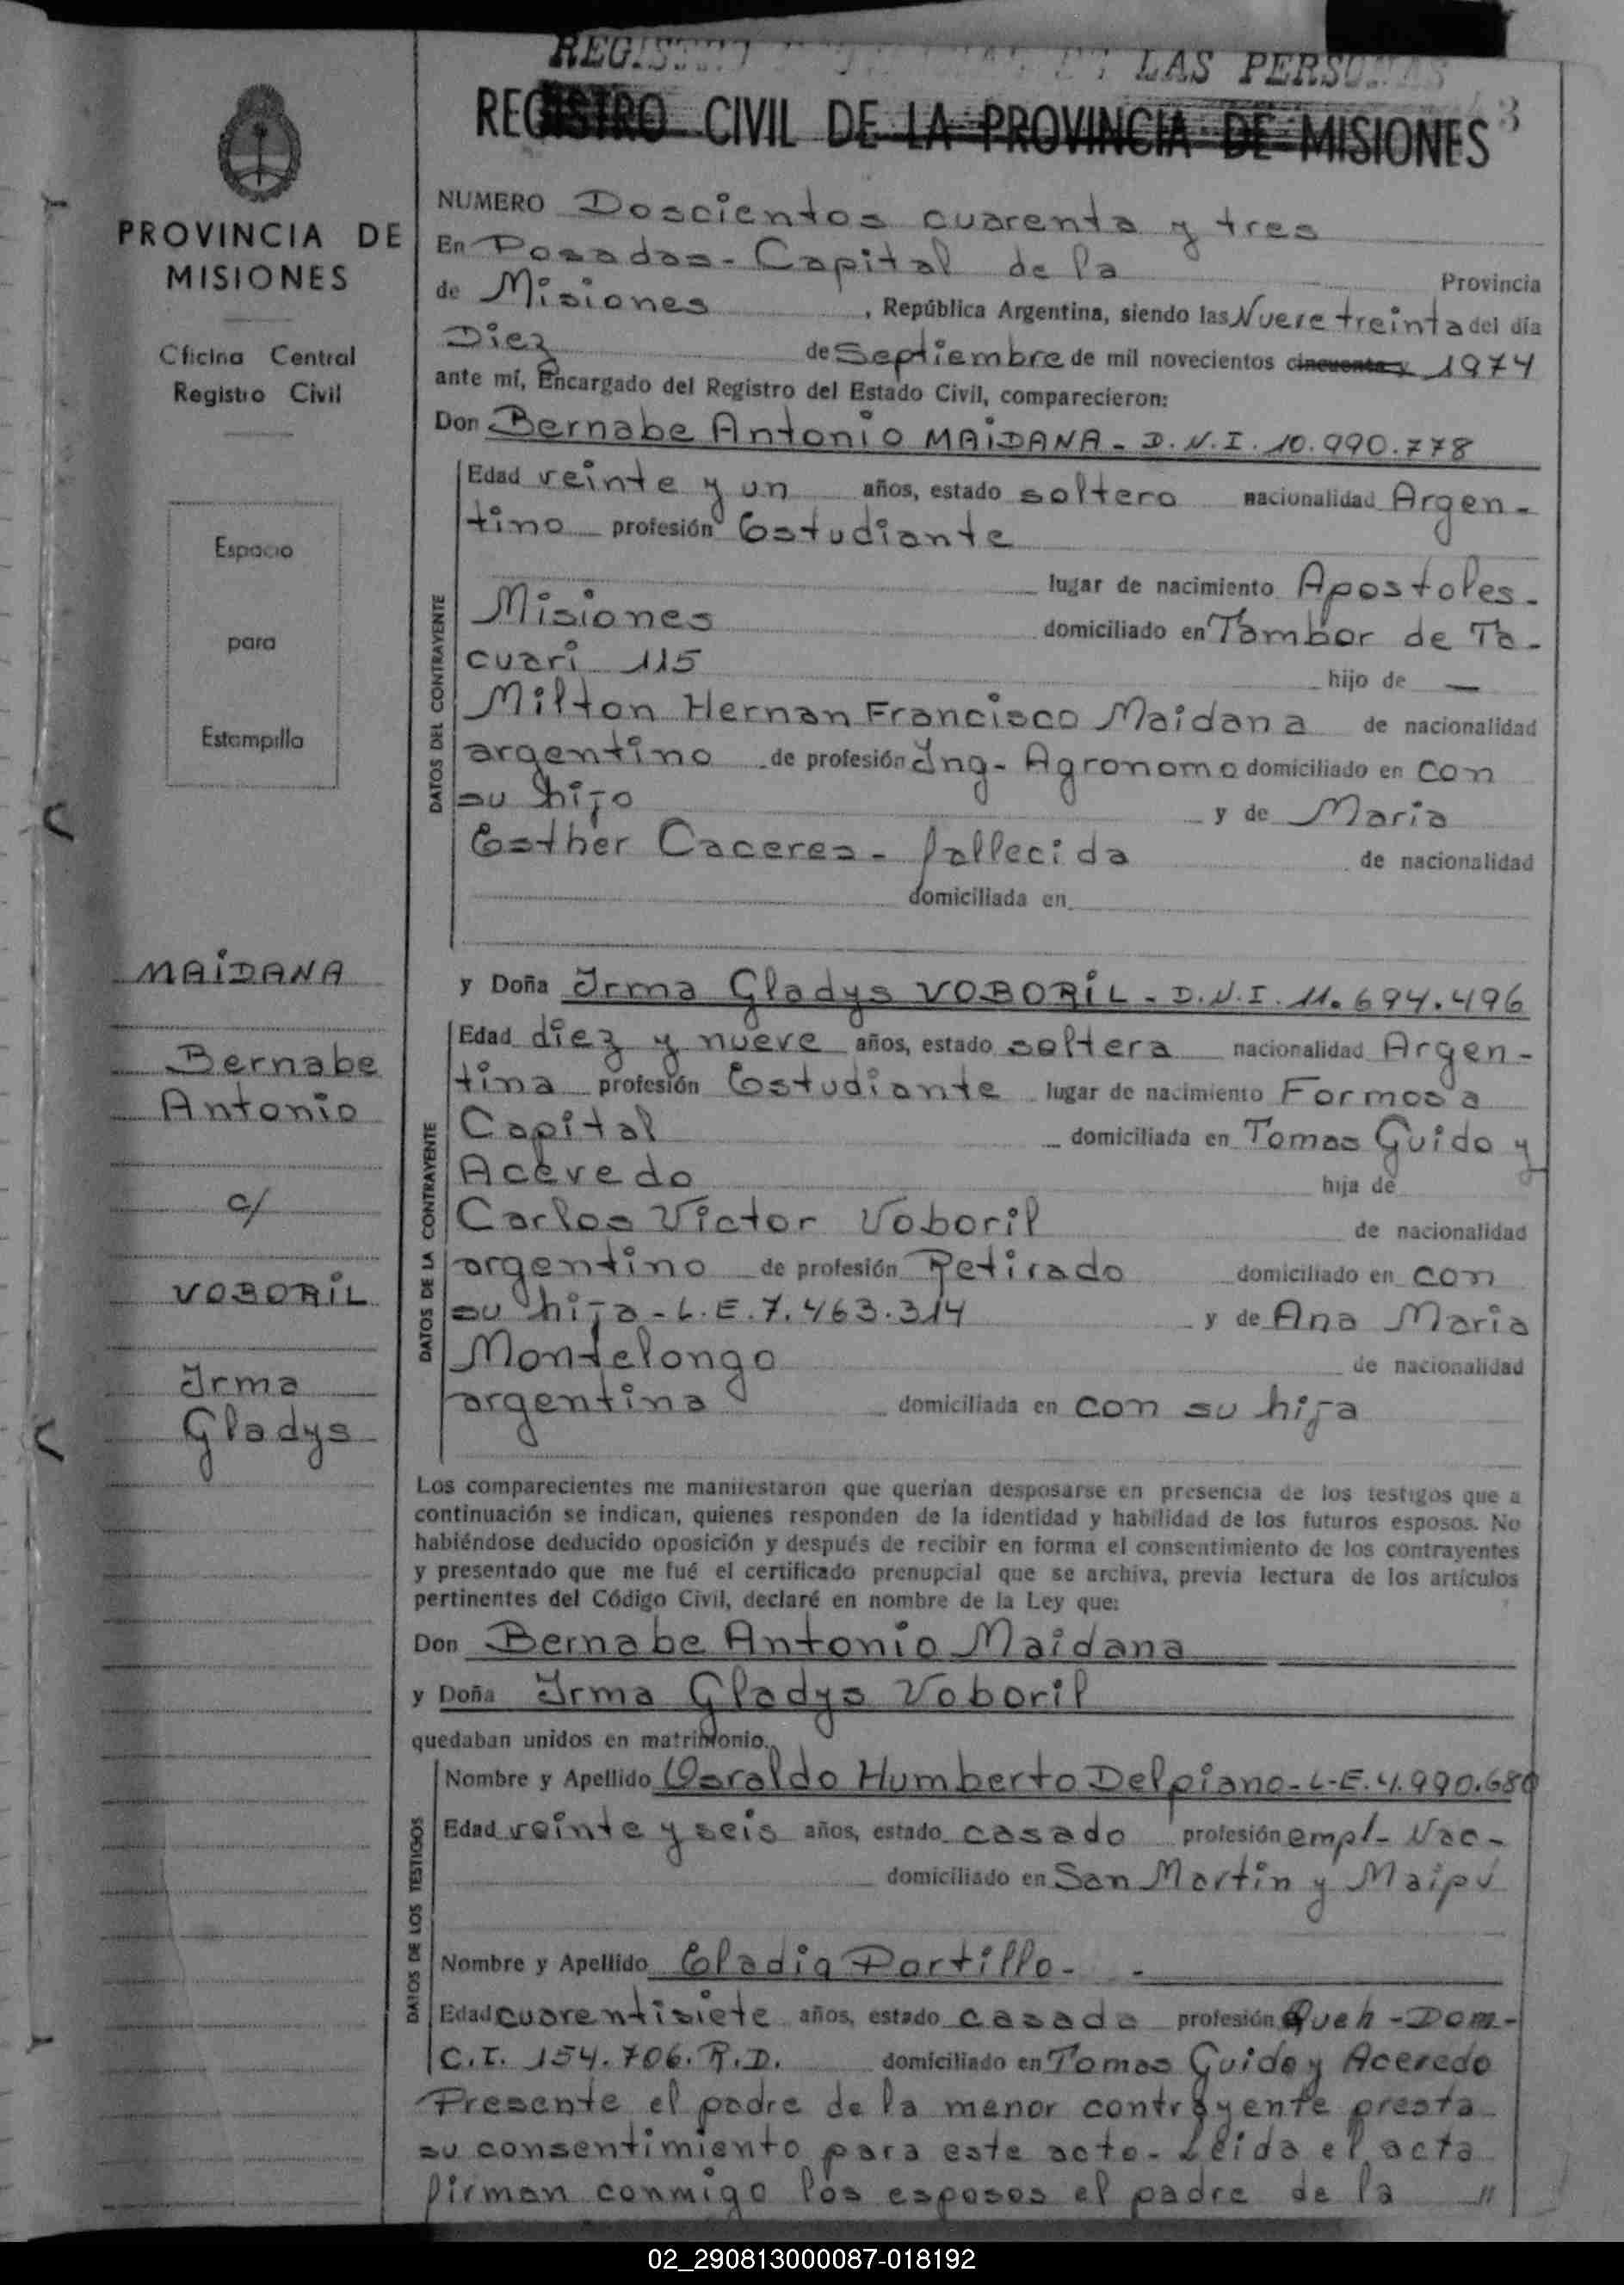 LAS
REGISTRO CIVIL DE LA PROVINCIA DE MISIONES
3
PROVINCIA DE
MISIONES
Oficina Central
Registro Civil
Espacio
para
Estampilla
MAIDANA
Bernabe
Antonio
c/
VOBORIL
Irma
Gladys
NUMERO Doscientos cuarenta y tres
En Posadas - Capital de la Provincia
de Misiones, República Argentina, siendo las Nueve treinta del día
Diez de Septiembre de mil novecientos cincuenta y 1974
ante mí, Encargado del Registro del Estado Civil, comparecieron:
Don Bernabe Antonio MAIDANA - D.N.I. 10.990.778
DATOS DEL CONTRAYENTE
Edad veinte y un años, estado soltero nacionalidad Argen-
tino profesión Estudiante
lugar de nacimiento Apostoles -
Misiones domiciliado en Tambor de Ta-
cuari 115 hijo de —
Milton Hernan Francisco Maidana de nacionalidad
argentino de profesión Ing - Agronomo domiciliado en con
su hijo y de Maria
Esther Caceres - fallecida de nacionalidad
domiciliada en
y Doña Irma Gladys VOBORIL - D.N.I. 11.694.496
DATOS DE LA CONTRAYENTE
Edad diez y nueve años, estado soltera nacionalidad Argen-
tina profesión Estudiante lugar de nacimiento Formosa
Capital domiciliada en Tomas Guido y
Acevedo hija de
Carlos Victor Voboril de nacionalidad
argentino de profesión Retirado domiciliado en con
su hija - L.E. 7.463.314 y de Ana Maria
Montelongo de nacionalidad
argentina domiciliada en con su hija
Los comparecientes me manifestaron que querían desposarse en presencia de los testigos que a
continuación se indican, quienes responden de la identidad y habilidad de los futuros esposos. No
habiéndose deducido oposición y después de recibir en forma el consentimiento de los contrayentes
y presentado que me fué el certificado prenupcial que se archiva, previa lectura de los artículos
pertinentes del Código Civil, declaré en nombre de la Ley que:
Don Bernabe Antonio Maidana
y Doña Irma Gladys Voboril
quedaban unidos en matrimonio.
DATOS DE LOS TESTIGOS
Nombre y Apellido Osvaldo Humberto Delpiano - L.E. 4.990.680
Edad veinte y seis años, estado casado profesión empl - Nac -
domiciliado en San Martin y Maipú
Nombre y Apellido Eladia Portillo - -
Edad cuarentisiete años, estado casada profesión Queh - Dom -
C.I. 154.706. R.D. domiciliado en Tomas Guido y Acevedo
Presente el padre de la menor contrayente presta
su consentimiento para este acto - Leida el acta
firman conmigo los esposos el padre de la //
02_290813000087-018192